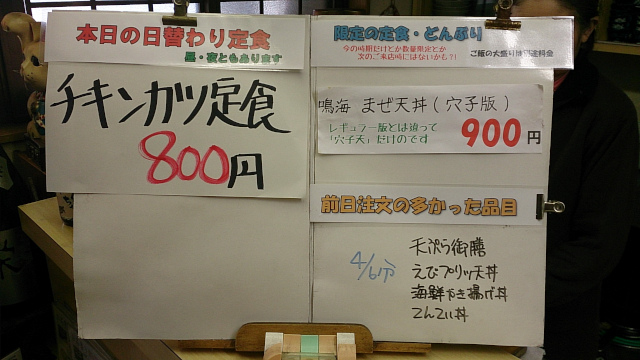 本日の日替わり定食
昼・夜ともあります
チキンカツ定食
800円
限定の定食・どんぶり
今の時期だけとか数量限定とか
次のご来店時にはないかも?!
ご飯の大盛りは別途料金
鳴海 まぜ天丼(穴子版)
レギュラー版とは違って
「穴子天」だけのです
900円
前日注文の多かった品目
4/6分
天ぷら御膳
えびプリッ天丼
海鮮かき揚げ丼
てんてい丼